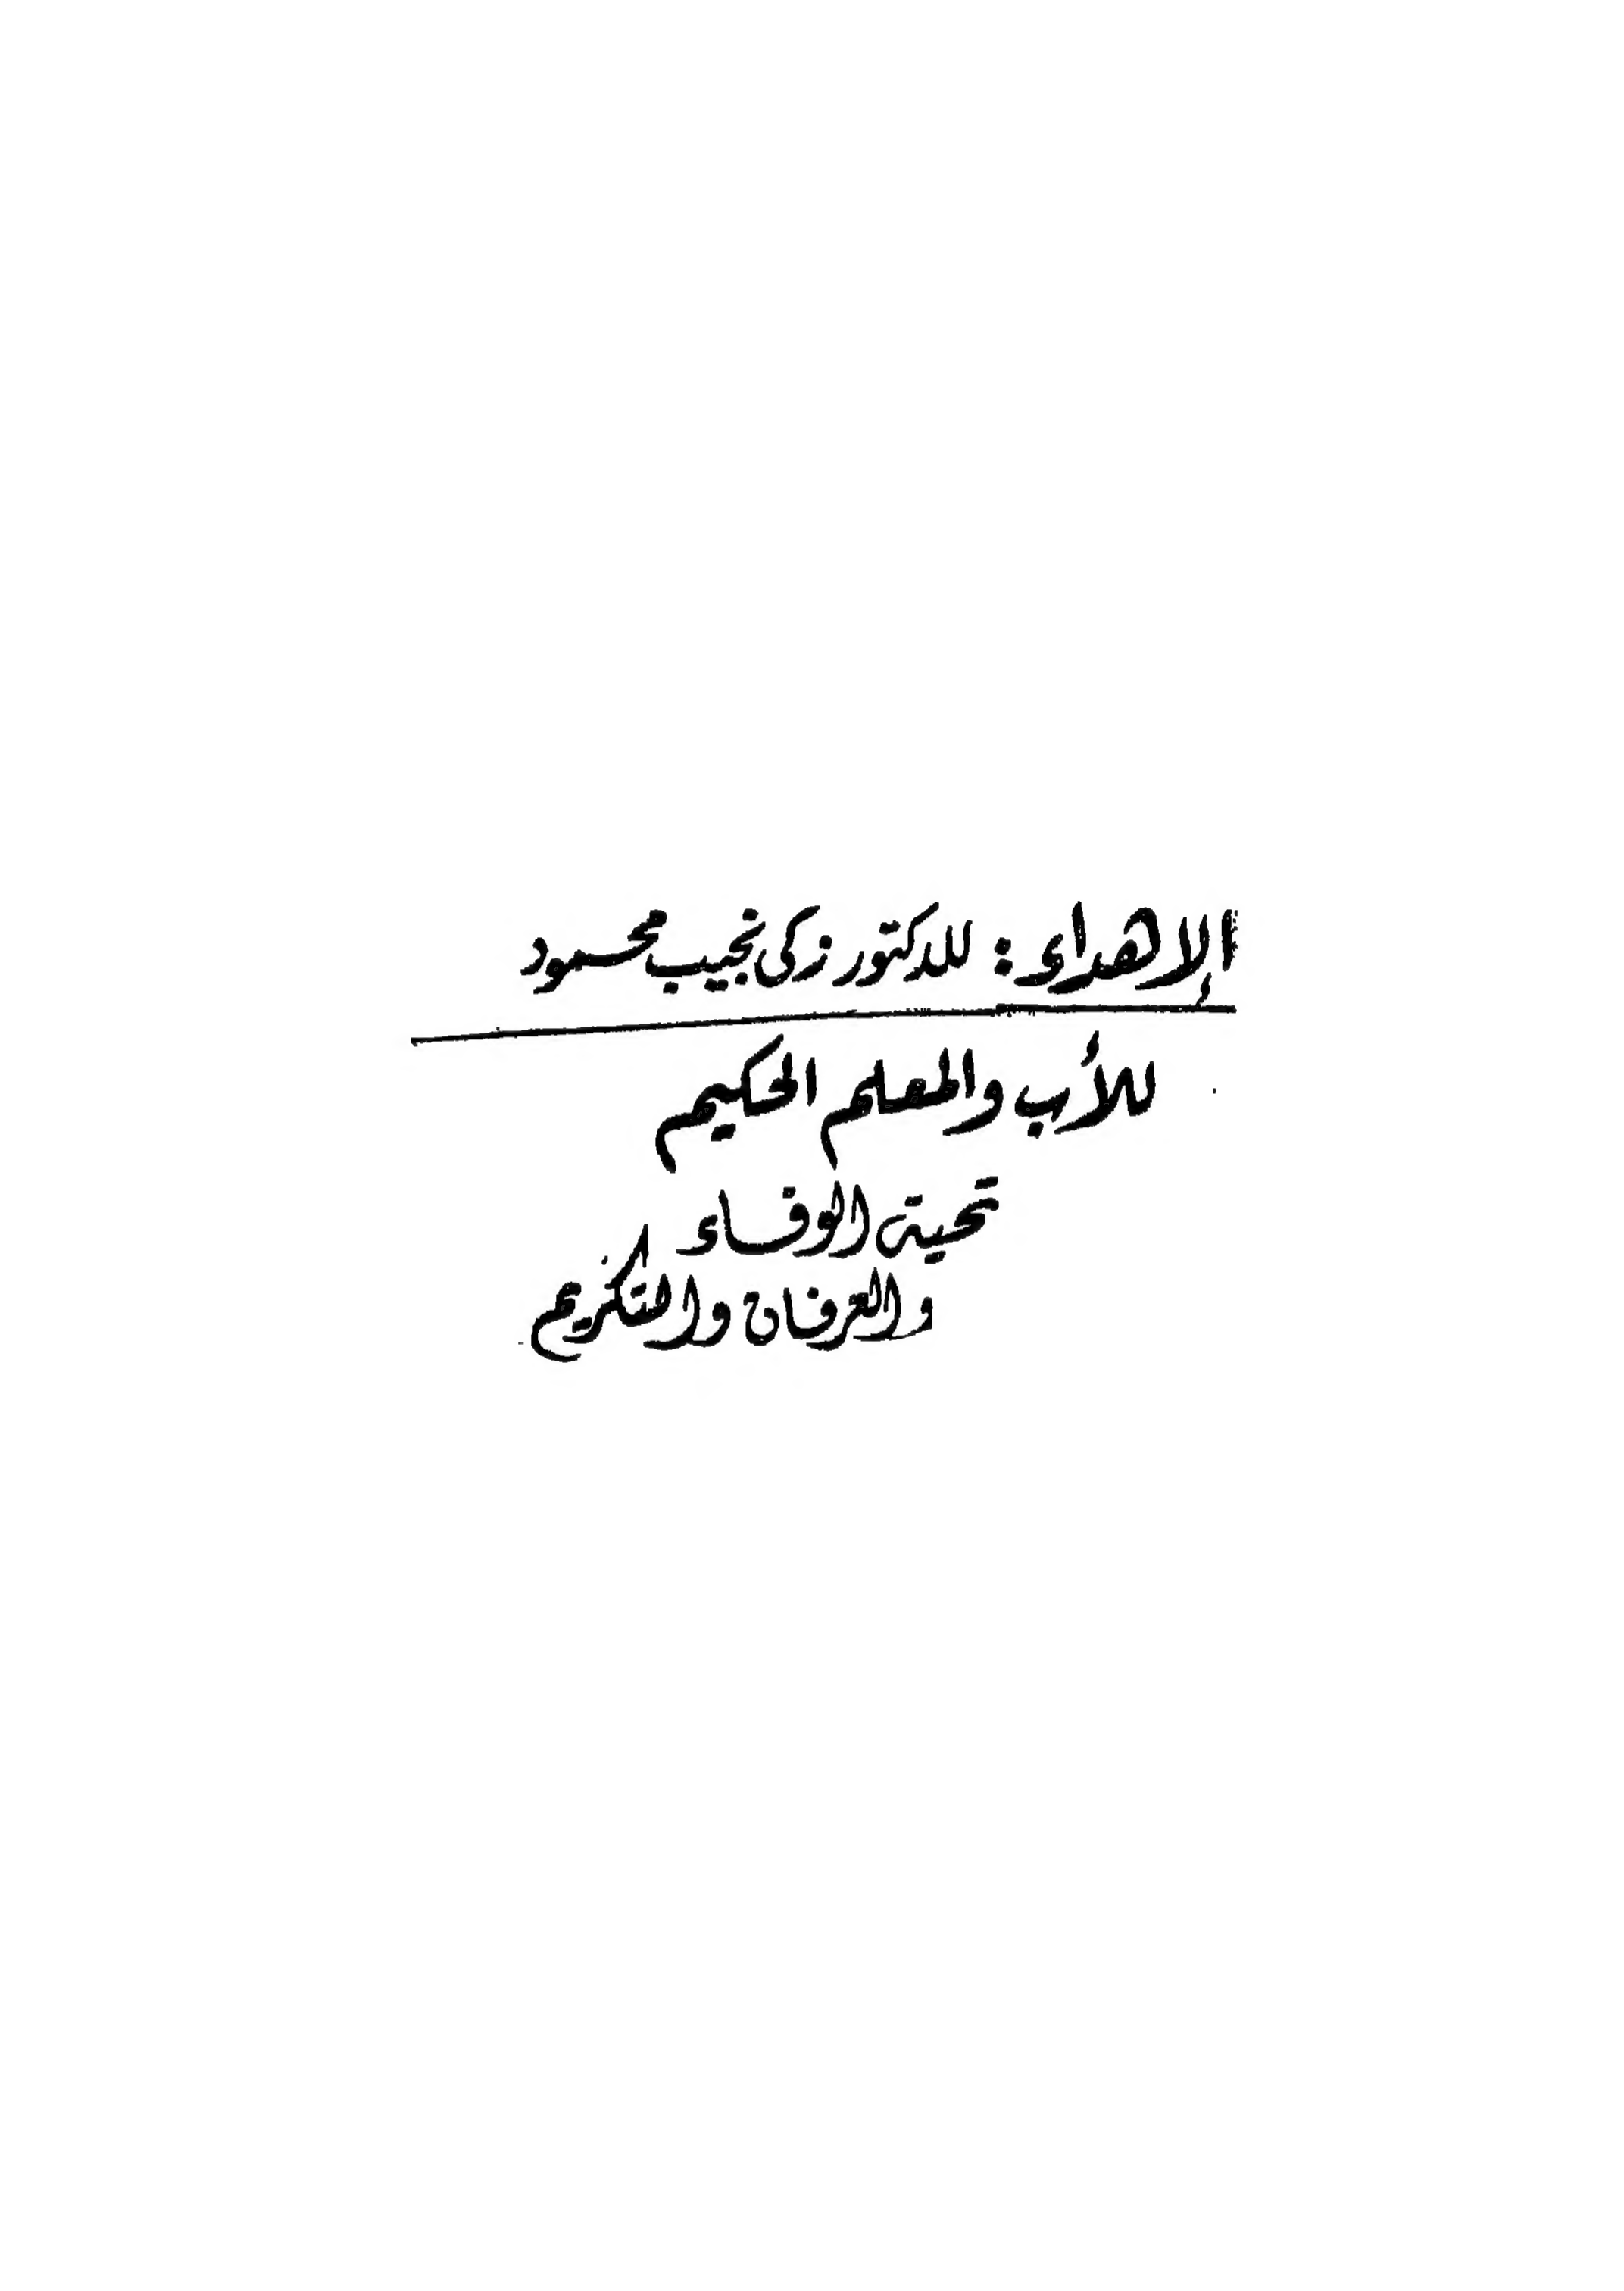 الإهداء : للدكتور زكى نجيب محمود
للأب والمعلم الحكيم
تحية الوفاء
والعرفان والتكريم